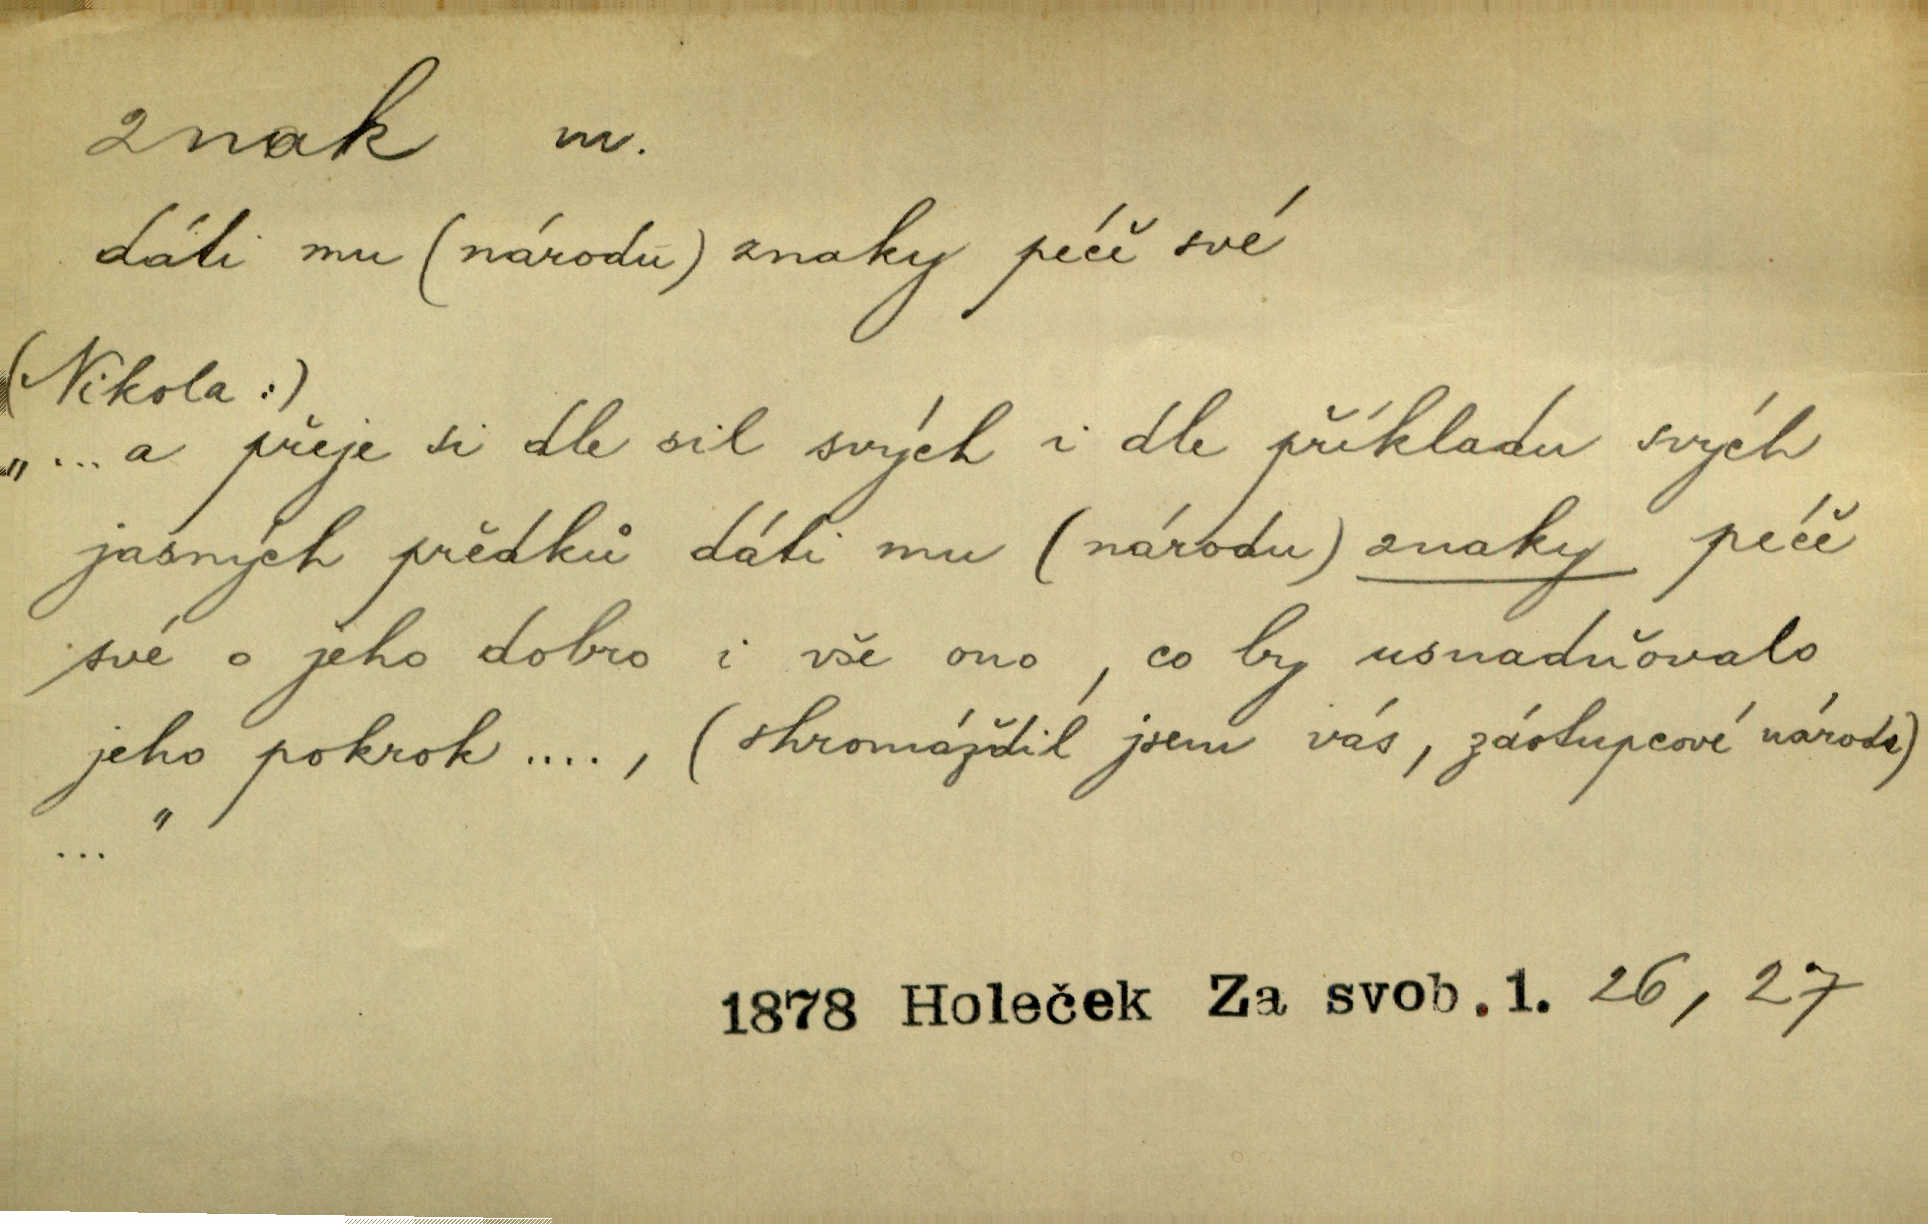 znak m.
dáti mu (národu) znaky péče své
(Nikola :)
„... a přeje si dle sil svých i dle příkladu svých
jasných předků dáti mu (národu) znaky péče
své o jeho dobro i vše ono, co by usnadňovalo
jeho pokrok ...., (shromáždil jsem vás, zástupcové národa)
... "
1878 Holeček Za svob. 1. 26, 27